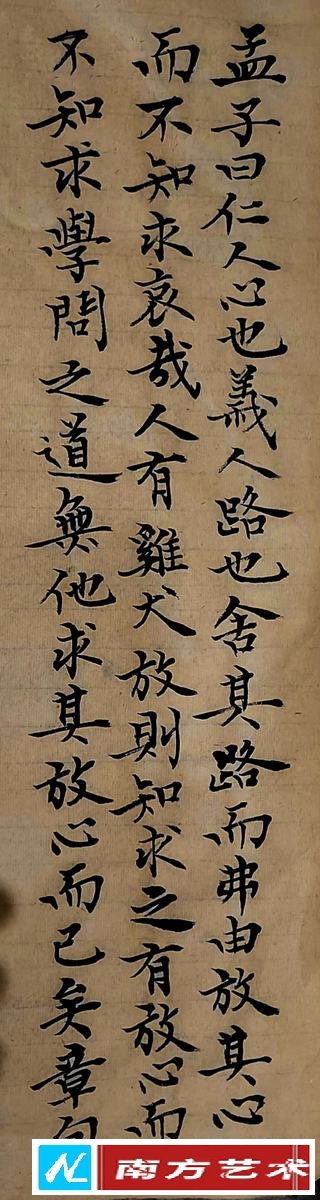 孟子曰仁人心也義人路也舍其路而弗由放其心
而不知求哀哉人有雞犬放則知求之有放心而
不知求學問之道無他求其放心而已矣章句
南方艺术